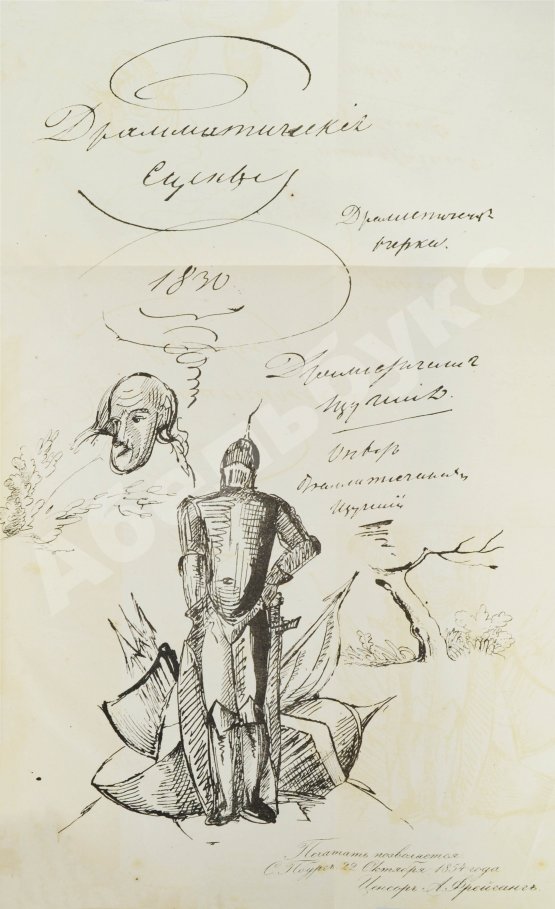 Драмматическія
сцены
Драматическіе
очерки.
1830
Драматическія
изученія
Опытъ
драматическихъ
изученій
Печатать позволяется
С. Пбургъ 22 Октября 1854 года
Ценсоръ А. Фрейгангъ